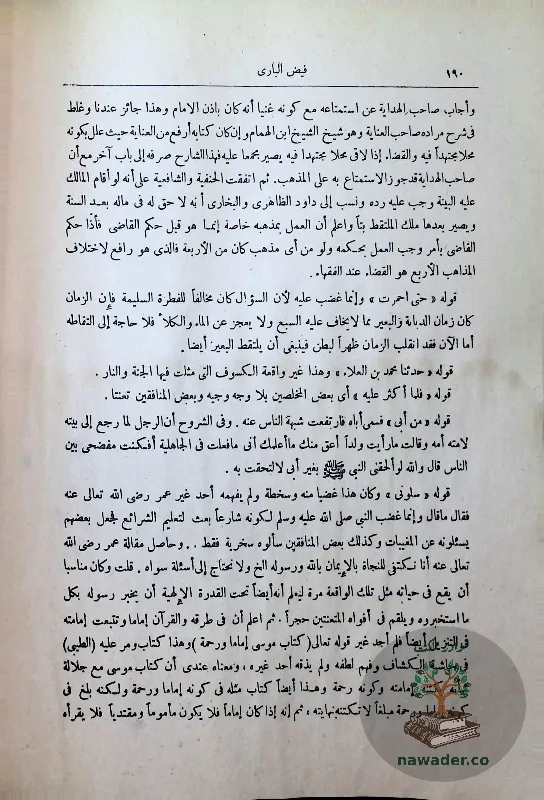 ١٩٠
فيض البارى
وأجاب صاحب الهداية عن استمتاعه مع كونه غنيا أنه كان باذن الامام وهذا جائز عندنا وغلط
فى شرح مراده صاحب العناية وهو شيخ الشيخ ابن الهمام وإن كان كتابه أرفع من العناية حيث علل بكونه
محلا مجتهداً فيه والقضا. إذا لاقى محلا مجتهدا فيه يصير مجمعا عليه فهذا الشارح صرفه إلى باب آخر مع أن
صاحب الهداية قد جوز الاستمتاع به على المذهب. ثم اتفقت الحنفية والشافعية على أنه لو أقام المالك
عليه البينة وجب عليه رده ونسب إلى داود الظاهرى والبخارى أنه لا حق له فى ماله بعد السنة
ويصير بعدها ملك الملتقط بتاً واعلم أن العمل بمذهبه خاصة إنما هو قبل حكم القاضى فأذا حكم
القاضى بأمر وجب العمل بحكمه ولو من أى مذهب كان من الأربعة فالذى هو رافع لاختلاف
المذاهب الأربع هو القضاء عند الفقهاء.
قوله « حتى احمرت » وإنما غضب عليه لأن السؤال كان مخالفاً للفطرة السليمة فإن الزمان
كان زمان الديانة والبعير مما لايخاف عليه السبع ولا يعجز عن الماء والكلأ فلا حاجة إلى التقاطه
أما الآن فقد انقلب الزمان ظهراً لبطن فينبغى أن يلتقط البعير أيضا.
قوله « حدثنا محمد بن العلاء » وهذا غير واقعة الكسوف التى مثلت فيها الجنة والنار.
قوله « فلما أكثر عليه » أى بعض المخلصين بلا وجه وجيه وبعض المنافقين تعنتا.
قوله « من أبى » فسمى أباه فارتفعت شبهة الناس عنه. وفى الشروح أن الرجل لما رجع إلى بيته
لامته أمه وقالت مارأيت ولداً أعق منك ما أعلمك أنى مافعلت فى الجاهلية أفكنت مفضحى بين
الناس قال والله لو ألحقنى النبى ﷺ بغير أبى لالتحقت به.
قوله « سلونى » وكان هذا غضبا منه وسخطة ولم يفهمه أحد غير عمر رضى الله تعالى عنه
فقال ماقال وإنما غضب النبى صلى الله عليه وسلم لكونه شارعاً بعث لتعليم الشرائع فجعل بعضهم
يسئلونه عن المغيبات وكذلك بعض المنافقين سألوه سخرية فقط.. وحاصل مقالة عمر رضى الله
تعالى عنه أنا نكتفى للنجاة بالإيمان بالله ورسوله الخ ولا نحتاج إلى أسئلة سواه. قلت وكان مناسبا
أن يقع فى حياته مثل تلك الواقعة مرة ليعلم أنه أيضاً تحت القدرة الإلهية أن يخبر رسوله بكل
ما استخبروه ويلقم فى أفواه المتعنتين حجراً. ثم اعلم أن فى طرقه والقرآن إماما وتتبعت إمامته
فى التنزيل أيضاً فلم أجد غير قوله تعالى (كتاب موسى إماما ورحمة) وهذا كتاب ومر عليه (الطيبى)
حاشية الكشاف وفهم لطفه ولم يذقه أحد غيره، ومعناه عندى أن كتاب موسى مع جلالة
إمامته وكونه رحمة وهذا أيضاً كتاب مثله فى كونه إماما ورحمة ولكنه بلغ فى
كونه إماما ورحمة مبلغاً لا تكتنه نهايته، ثم إنه إذا كان إماماً فلا يكون مأموماً ومقتدياً فلا يقرأه
nawader.co